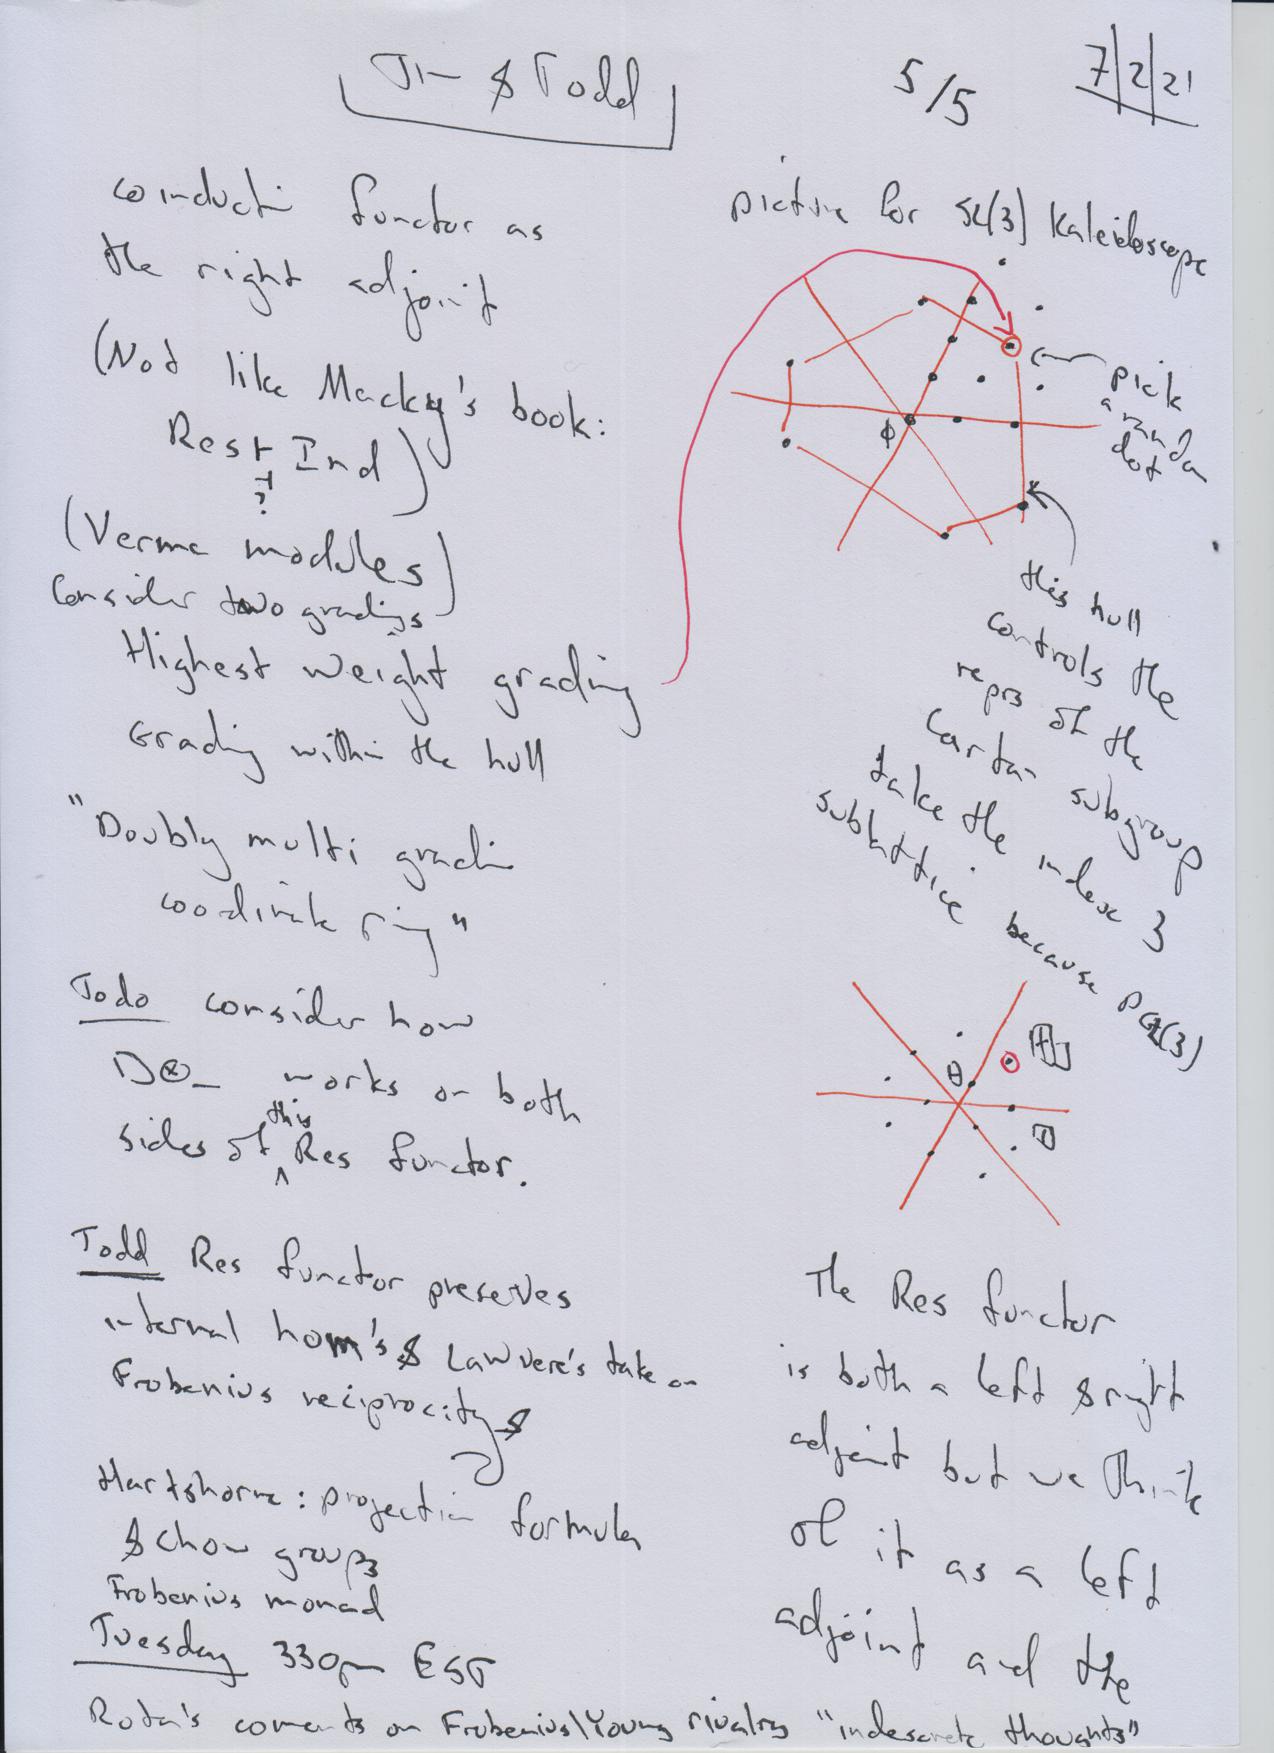 Jim & Todd
5/5
7/2/21
coinduction functor as
the right adjoint
(Not like Macky's book:
Rest ⊣ Ind)
?
(Verma modules)
Consider two gradings
Highest weight grading
Grading within the hull
"Doubly multi grading
coordinate ring"
Todo consider how
D⊗_ works on both
sides of this Res functor.
Todd Res functor preserves
internal hom's & Lawvere's take on
Frobenius reciprocity &
Hartshorne: projection formula
& Chow groups
Frobenius monad
Tuesday 330pm EST
Rota's coments on Frobenius\Young rivalry "indescrete thoughts"
picture for SL(3) Kaleidoscope
pick
a random
dot
this hull
controls the
reprs of the
Cartan subgroup
take the index 3
sublattice because PGL(3)
The Res functor
is both a left & right
adjoint but we think
of it as a left
adjoint and the